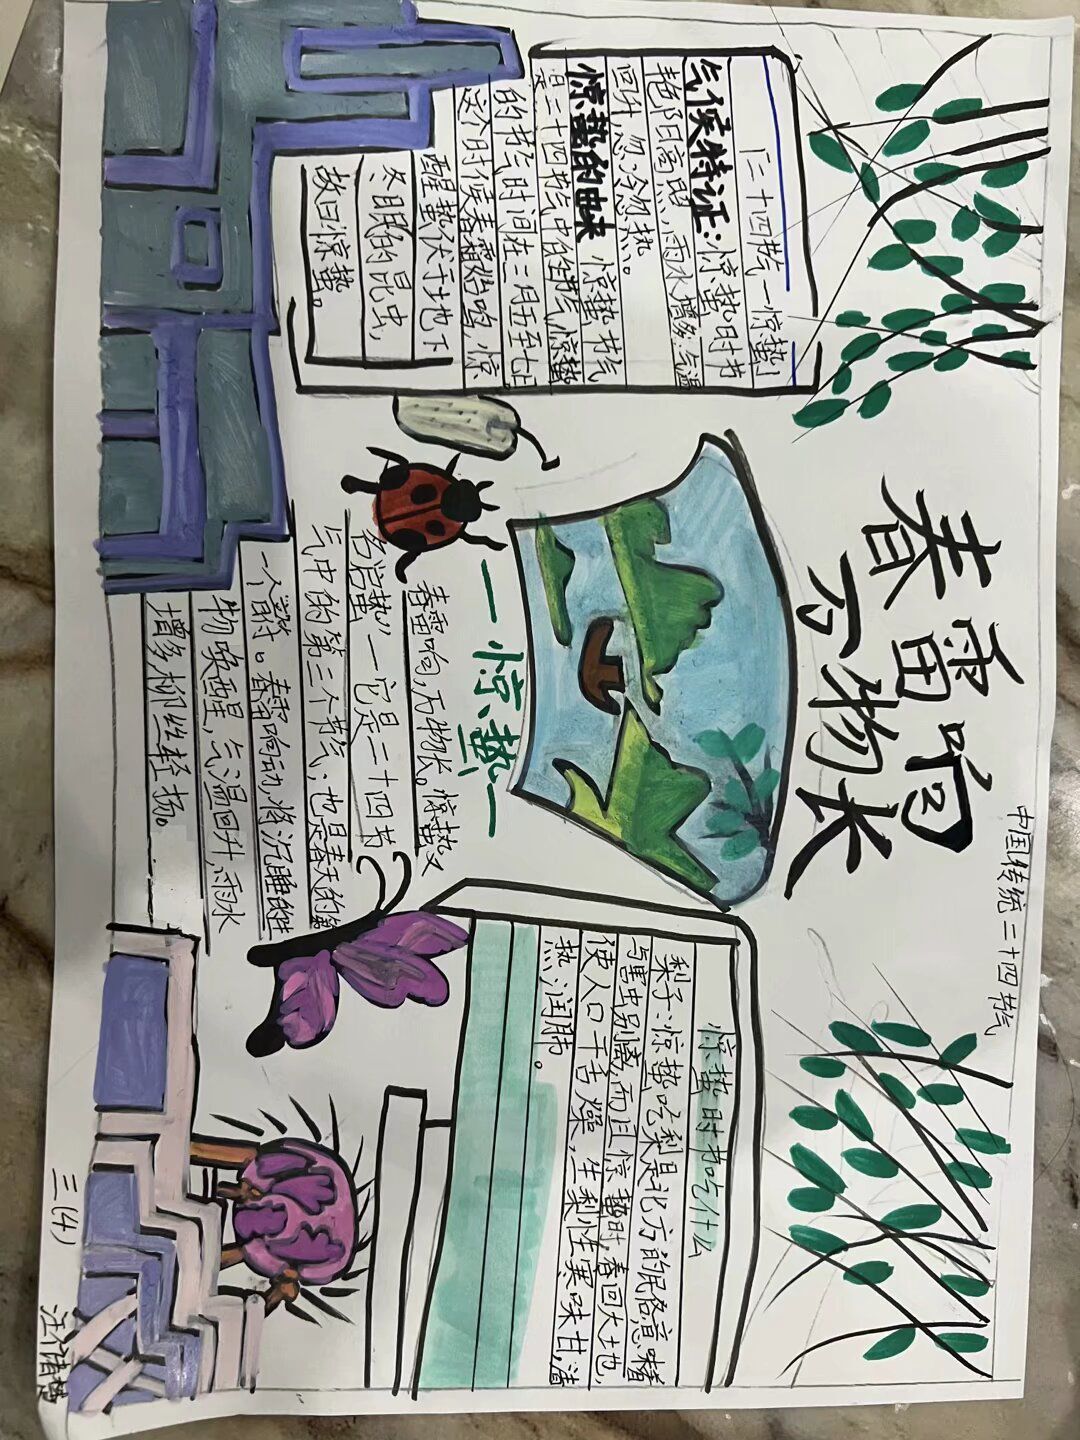 春雷响
万物长
中国传统二十四节气
【二十四节气—惊蛰】
气候特征：惊蛰时节
艳色日高照，雨水增多，气温
回升，忽冷忽热。
惊蛰的由来 惊蛰节气
是二十四节气中的节气，惊蛰
的节气时间在三月五至七日
这个时侯春雷始鸣，惊
醒蛰伏于地下
冬眠的昆虫，
故曰惊蛰。
—惊蛰—
春雷响，万物长。惊蛰又
名“启蛰”—它是二十四节
气中的第三个节气；也是春天的第
一个节日。春雷响动，将沉睡的生
物唤醒，气温回升，雨水
增多柳丝轻扬。
惊蛰时节吃什么
梨子：惊蛰吃梨是北方的民俗，意味着
与害虫别离，而且惊蛰时，春回大地，
使人口干舌燥，生梨性寒味甘，清
热润肺。
三（4）